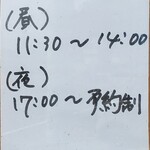 (昼)
11:30〜14:00
(夜)
17:00〜予約制